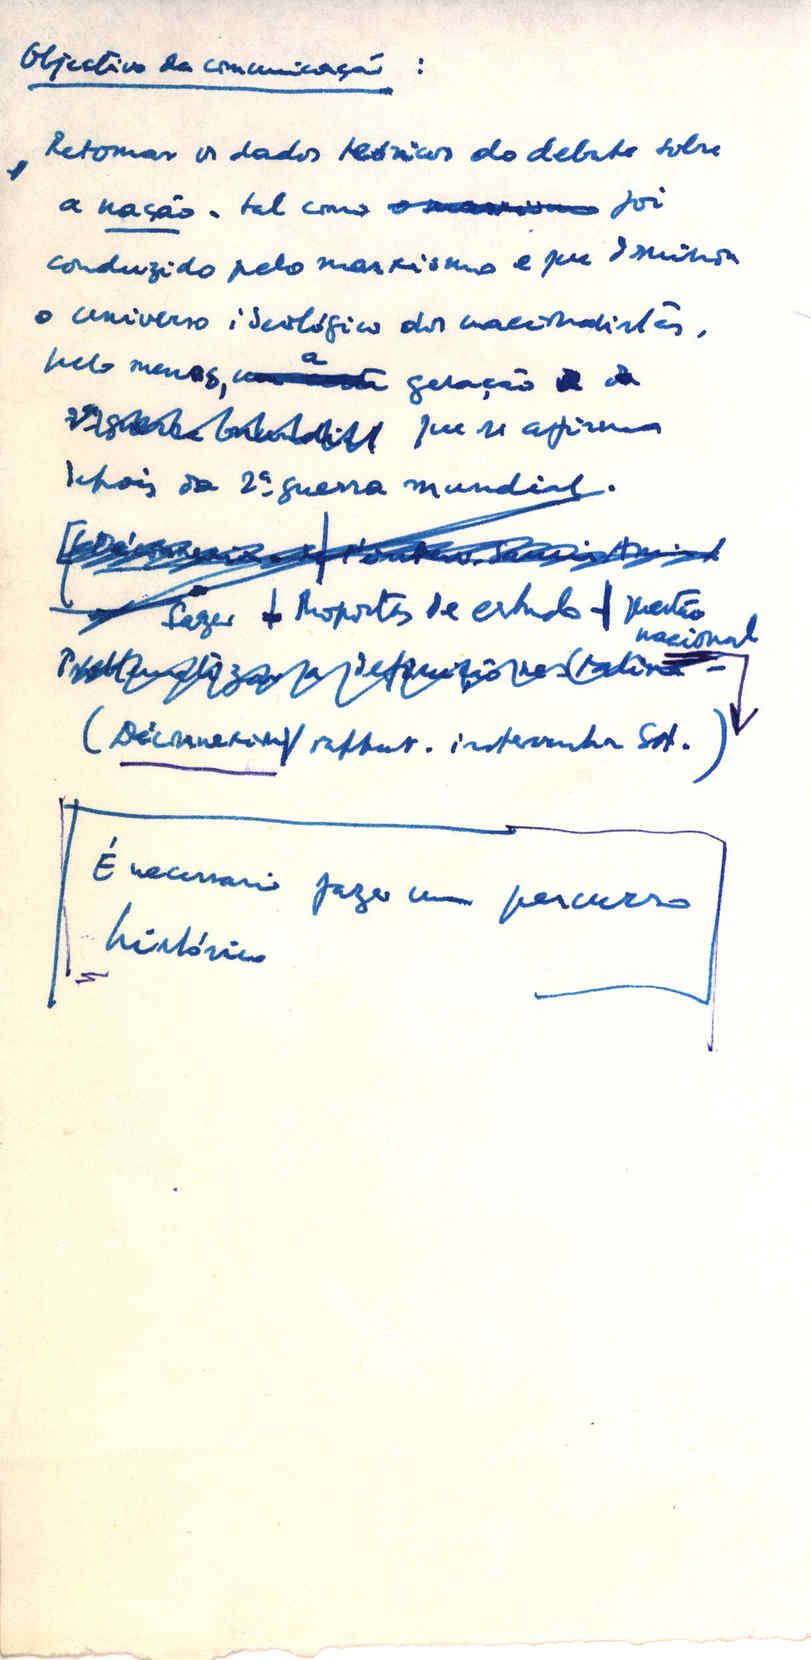 Objectivo da comunicação :
Retomar os dados teóricos do debate sobre
a nação. tal como o marxismo foi
conduzido pelo marxismo e que dominou
o universo ideológico dos nacionalistas,
pelo menos, a geração
que se afirmou
depois da 2ª guerra mundial.
fazer Propostas de estudo questão
nacional
(Déconnexion/ rapport.
É necessario fazer um percurso
histórico